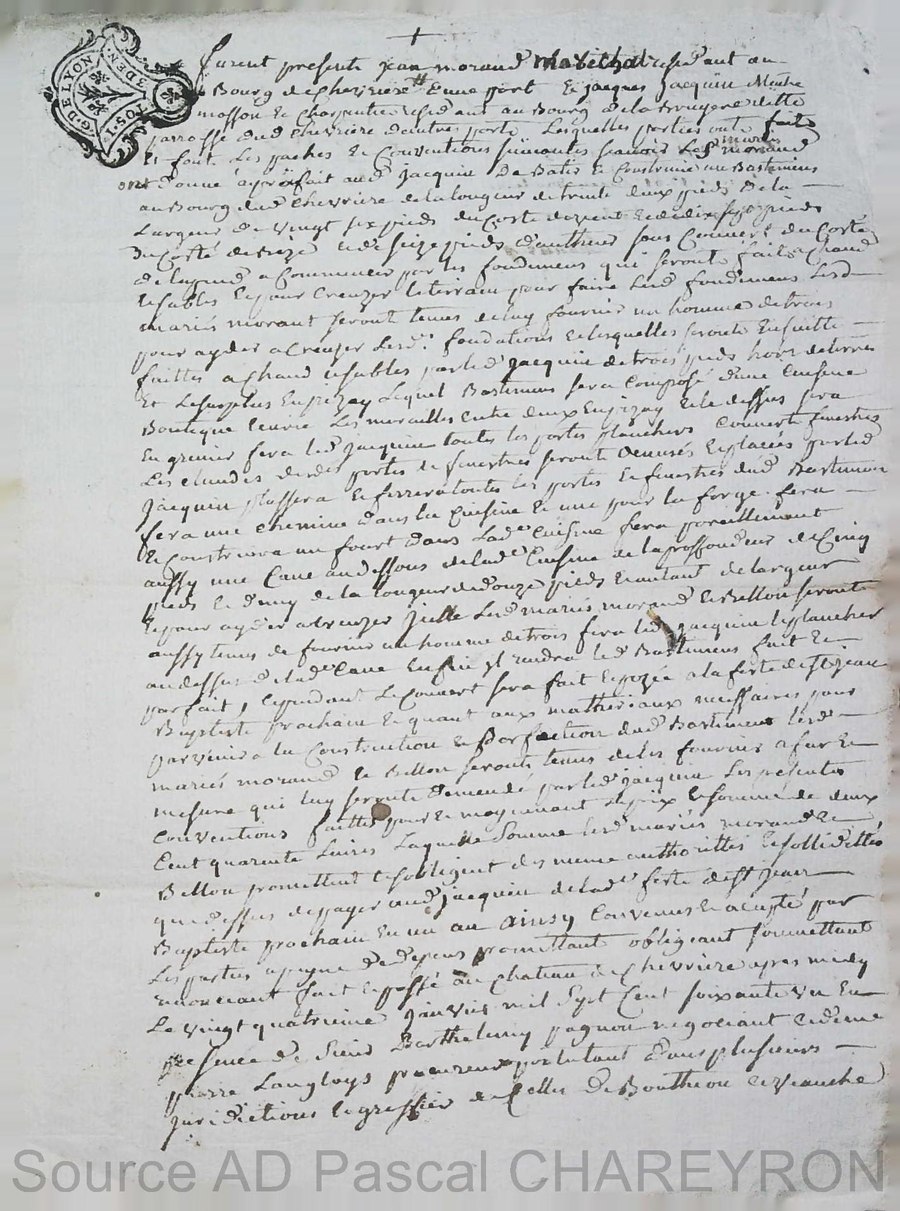 G. DE LYON
SDEN
1. SOL
furent presents jean morand marechal residant au
Bourg de Chevriere d'une part Et jacques jacquin Me
masson Et Charpentier residant au Bourg de la Bruyere ditte
parroisse dud Chevriere d'autre part Lesquelles parties ont fait
Et font Les paches Et Conventions suivantes scavoir Lesd mariés morand
ont donné a prix fait aud jacquin De Batir Et Construire un Bastiment
au Bourg dud Chevriere de la longueur de trente deux pieds De la
Largeur de vingt six pieds du Costé de vent Et de dix sept pieds
Du Costé de Et de seize pieds d'autheur sous Couvert du Costé
a Commencer par les fondements qui seront faits a Chaud
Et sables Et pour Creuzer le terrain pour faire Lesd fondemens Lesd
mariés morant seront tenus de luy fournir un homme de trois
pour ayder a Creuzer Lesd. fondations Et lesquelles seront Ensuitte
faittes a Chaud Et sables par led jacquin de trois pieds hors de terre
Et Le surplus En pizay Lequel Bastiment sera Composé d'une Cuisine
Boutique Ecurie Les murailles Entre deux En pizay Et le dessus sera
En grenier fera led jacquin toutes les portes planchers Couvert fenestres
Les desd portes Et fenestres seront Et placées par led
jacquin plassera Et ferrera toutes les portes Et fenestres dud Bastiment
fera une Cheminé dans la Cuisine Et une pour la forge fera
Et Construira un fourt dans Lad Cuisine fera pareillement
aussy une Cave au dessous de lad Cuisine de la proffondeur de Cinq
pieds Et demy de la longueur de douze pieds Et autant de largeur
Et pour ayder a Creuzer jcelle Lesd mariés morand Et Bellon seront
aussy tenus de fournir un homme de trois fera led jacquin le plancher
au dessus de lad Cave Enfin jl rendra led Bastiment fait Et
parfait, Cependant Le Couvert sera fait Et pozée a la feste de St jean
Baptiste prochain Et quant aux mathériaux nessaires pour
parvenir a la Construction Et Perfection dud Bastiment Lesd
mariés morand Et Bellon seront tenus de les fournir a fur Et
mesure qui luy seront Demandé par led jacquin Les présentes
Conventions faittes pour Et moyennant Le prix Et somme de deux
Cent quarente Livres Laquelle Somme Lesd mariés morand Et
Bellon promettent Et sobligent des meme authorittés Et sollidittés
que dessus de payer aud jacquin de lad feste de St jean
Baptiste prochain En un an Ainsy Convenus Et accepté par
Les parties a payne de depens promettant obligeant soumettant
renonceant fait Et passé au Chateau de Chevriere apres midy
Le vingt quatrieme janvier mil Sept Cent soixante un En
presence de Sieur Barthelemy pagnon negociant Et de me
pierre Langloys procureur postulant dans plusieurs
juridictions Et greffier de Celles de Bouthéon Et Veauche
Source AD Pascal CHAREYRON